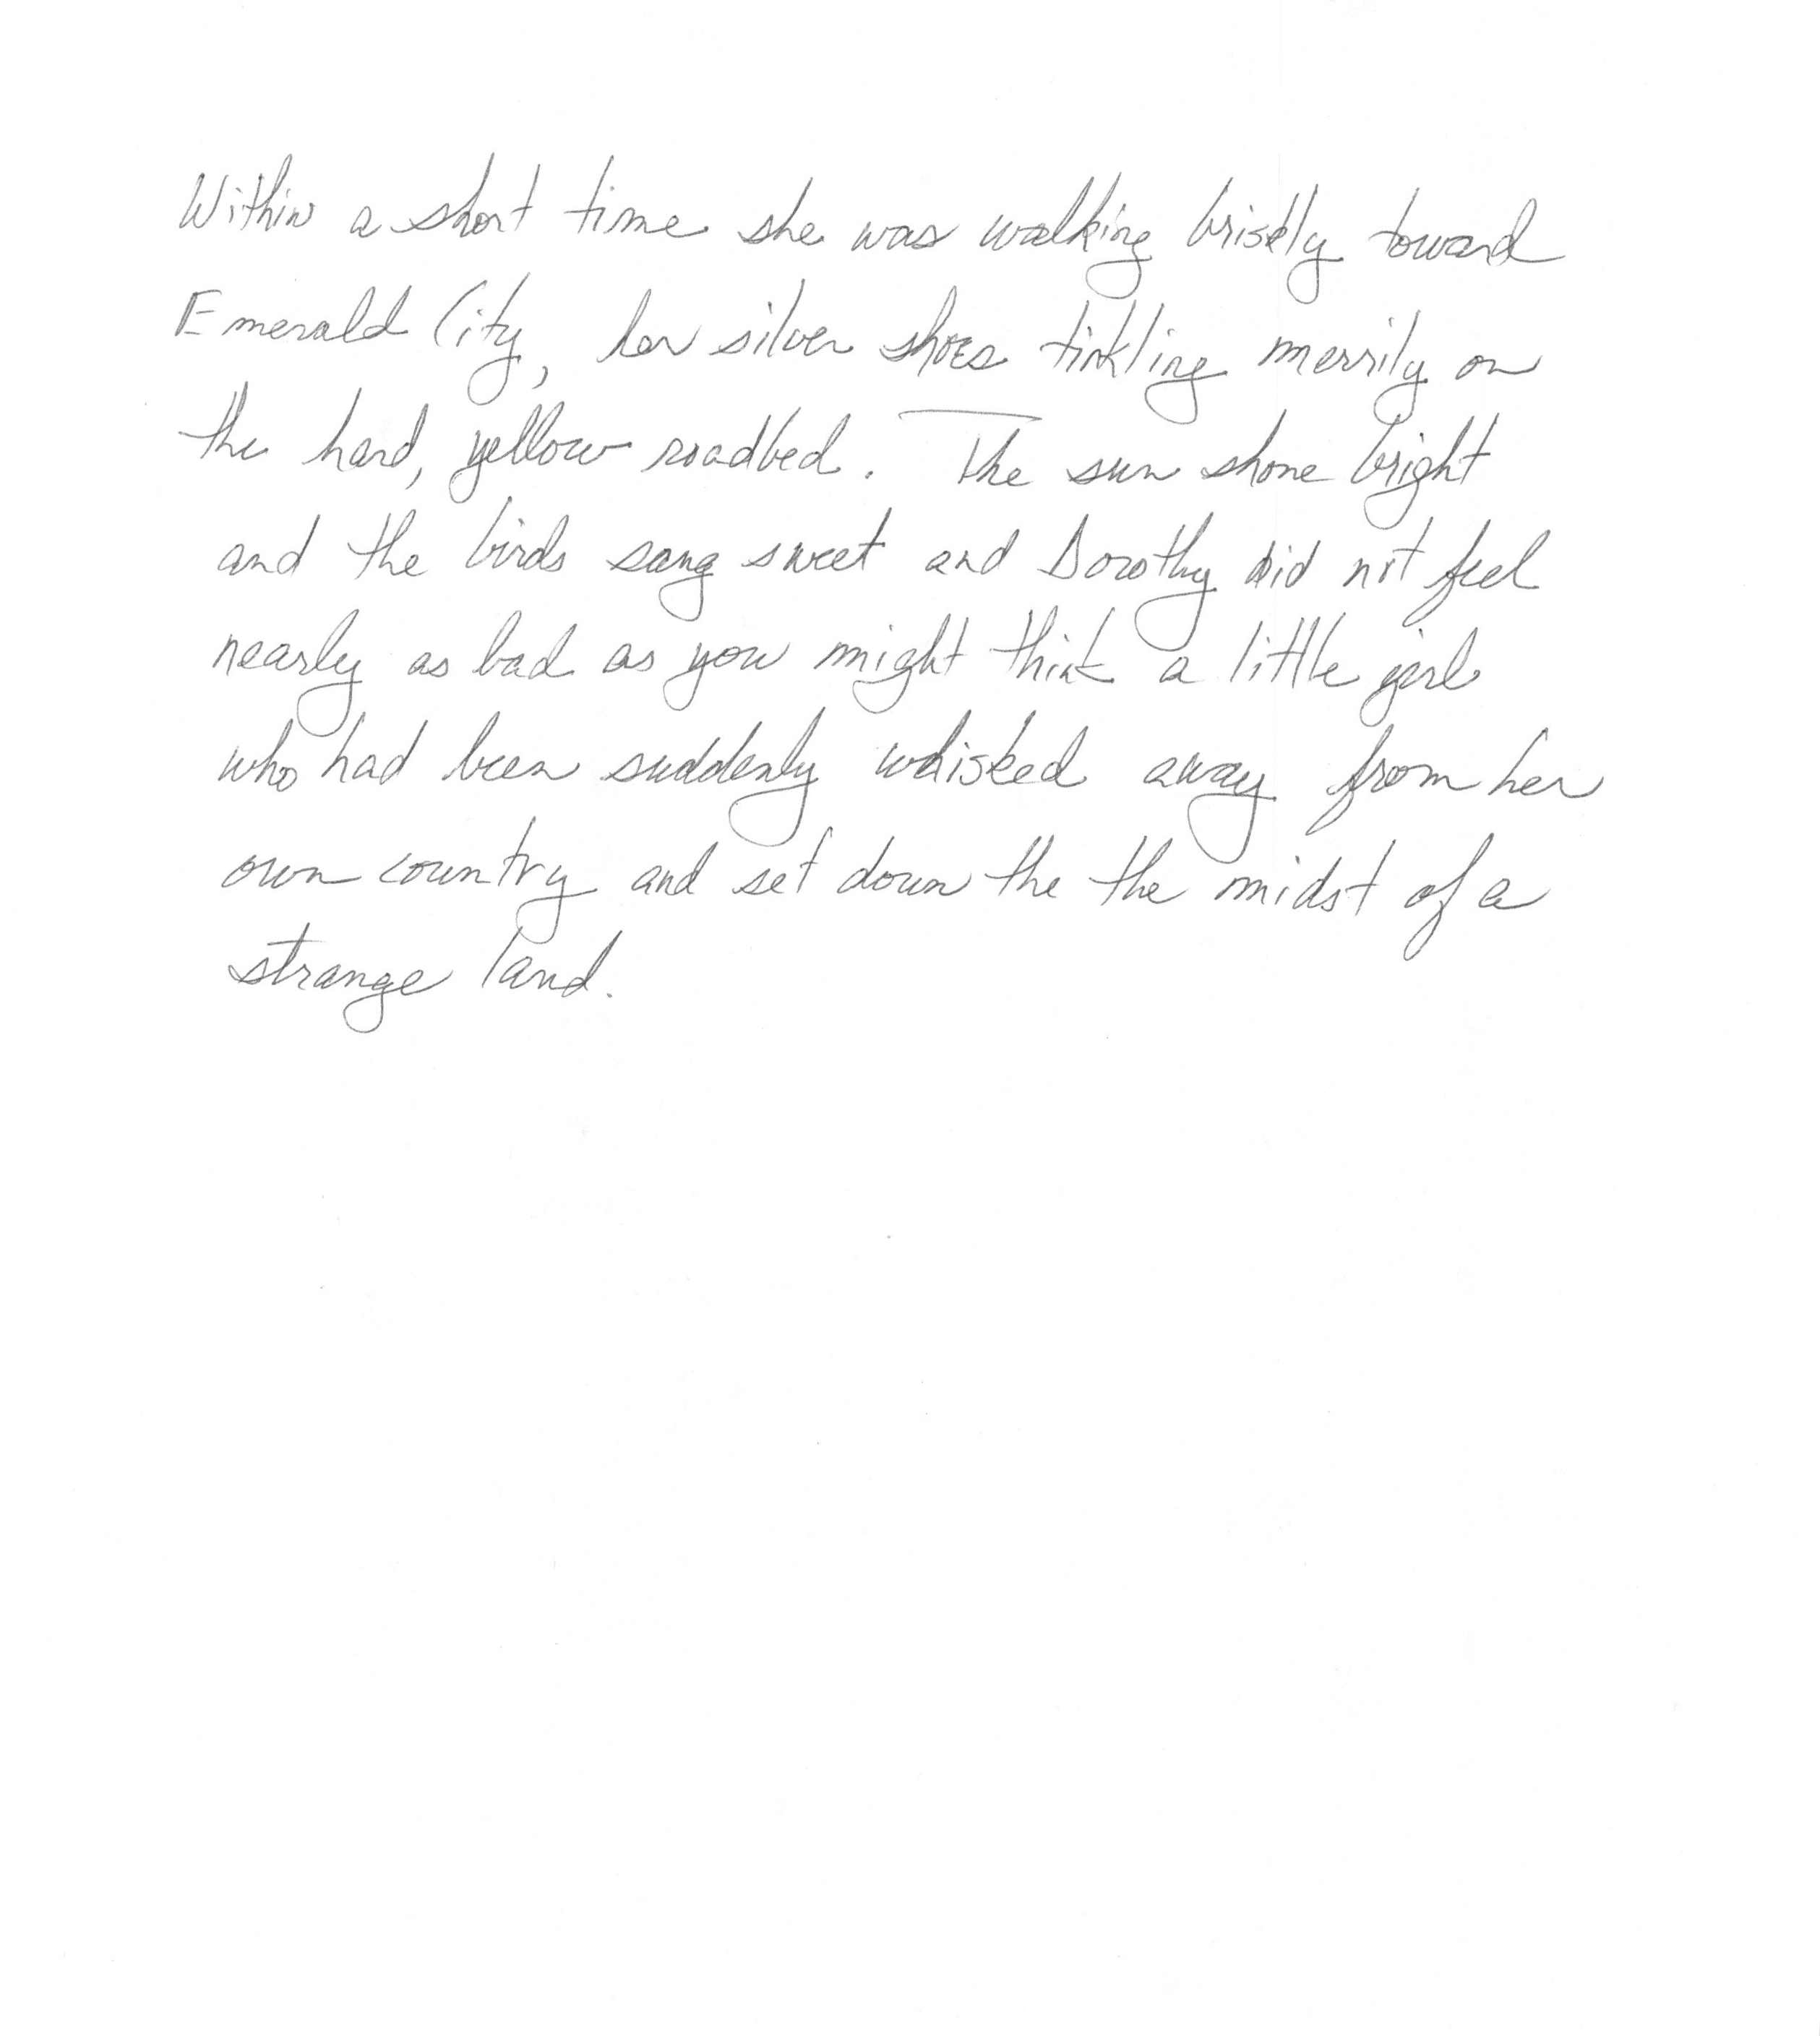 Within a short time she was walking briskly toward
Emerald City, her silver shoes tinkling merrily on
the hard, yellow roadbed. The sun shone bright
and the birds sang sweet and Dorothy did not feel
nearly as bad as you might think a little girl
who had been suddenly whisked away from her
own country and set down the the midst of a
strange land.